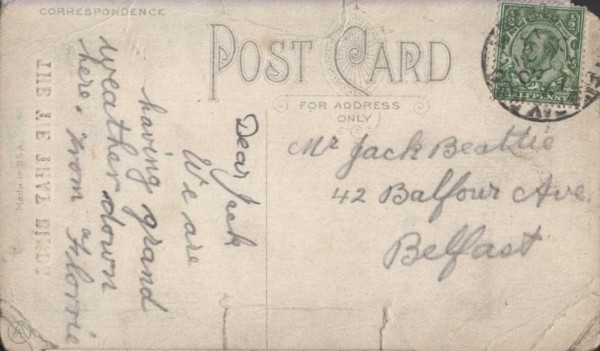 CORRESPONDENCE
POST CARD
FOR ADDRESS
ONLY
Dear Jack
We are
having grand
weather down
here. From Florrie
Mr Jack Beattie
42 Balfour Ave.
Belfast
Made in U.S.A.
THE TIE THAT BINDS